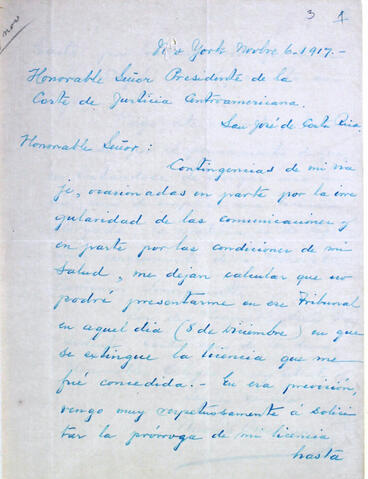 nov
3 1
New York Novbre 6-1917.-
Honorable Señor Presidente de la
Corte de Justicia Centroamericana.
San José de Costa Rica.
Honorable Señor:
Contingencias de mi via
je, ocasionadas en parte por la irre
gularidad de las comunicaciones y
en parte por las condiciones de mi
salud, me dejan calcular que no
podré presentarme en ese Tribunal
en aquel dia (5 de Diciembre) en que
se extingue la licencia que me
fué concedida.- En esa previsión,
vengo muy respetuosamente á solici
tar la prórroga de mi licencia
hasta